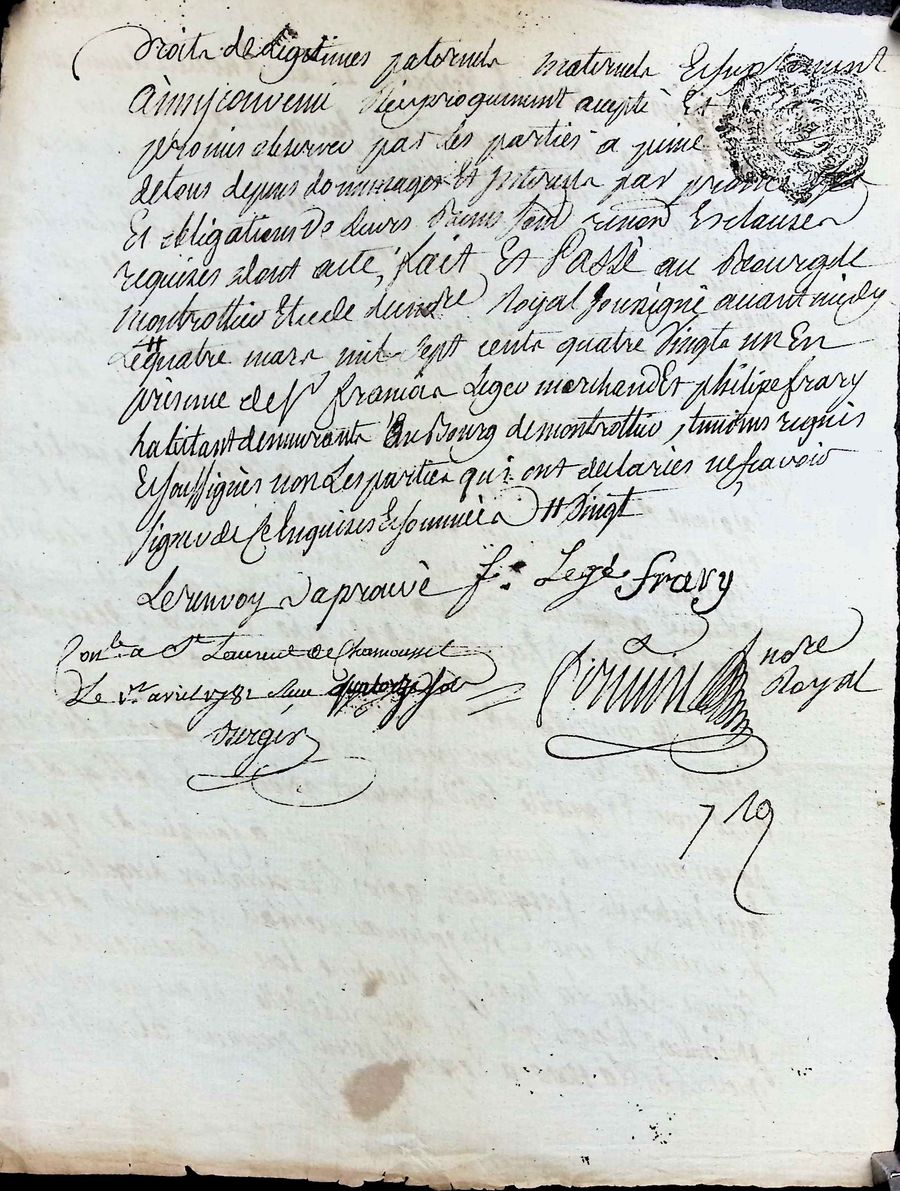 droits de Légitimes paternels maternels Et suplement
ainsy convenu Reciproquement accepté Et
promis observer par les parties a peine
de tous depens dommages Et interests par
Et obligations de leurs biens soub renon Et clauses
requises dont acte, fait Et Passé au Bourg de
Montrottier Etude du notre Royal soussigné avant midy
Le # quatre mars mil sept cents quatre Vingts un En
présence de Sr François Leger marchand Et philipe frary
habitants demeurants au Bourg de montrottier, temoins requis
Et soussignés non Les parties qui ont declarées ne sçavoir
signer de ce Enquises Et sommées # Vingt
Le renvoy aprouvé f. Legé frary
Conlé a St Laurent de Chamousset notre
Le 1er avril 1781 Reçu quatorze sols Royal
Berger
719